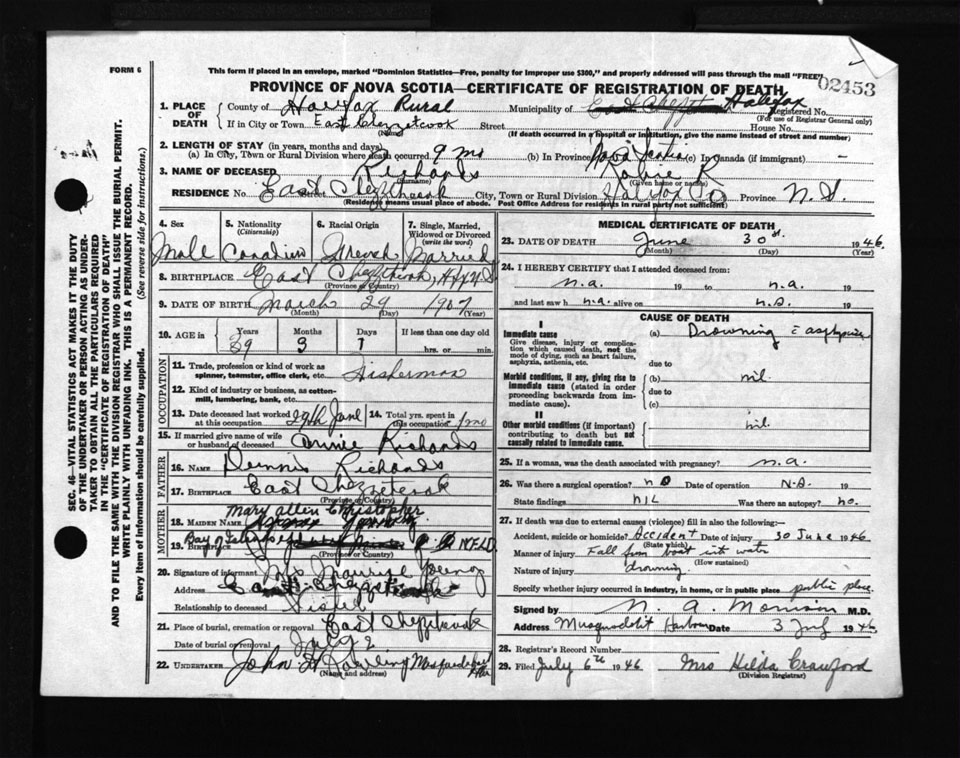 FORM 6
This form if placed in an envelope, marked "Dominion Statistics—Free, penalty for improper use $300," and properly addressed will pass through the mail "FREE"
02453
PROVINCE OF NOVA SCOTIA—CERTIFICATE OF REGISTRATION OF DEATH
1. PLACE OF DEATH County of Halifax Rural Municipality of Halifax Registered No.
(For use of Registrar General only)
If in City or Town East Chezzetcook Street House No.
(Name) (If death occurred in a hospital or institution, give the name instead of street and number)
2. LENGTH OF STAY (in years, months and days)
(a) In City, Town or Rural Division where death occurred 9 mo (b) In Province Nova Scotia (c) In Canada (if immigrant) -
3. NAME OF DECEASED Richards R
(Surname) (Given name or names)
RESIDENCE No. East Chezzetcook Street City, Town or Rural Division Halifax Co Province N.S.
(Residence means usual place of abode. Post Office Address for residents in rural parts not sufficient)
4. Sex 5. Nationality (Citizenship) 6. Racial Origin 7. Single, Married, Widowed or Divorced (write the word)
Male Canadian French Married
8. BIRTHPLACE East Chezzetcook, Hfx N.S
(Province or Country)
9. DATE OF BIRTH March 29 1907
(Month) (Day) (Year)
10. AGE in Years Months Days If less than one day old
39 3 1 hrs. or min.
OCCUPATION
11. Trade, profession or kind of work as spinner, teamster, office clerk, etc. Fisherman
12. Kind of industry or business, as cotton-mill, lumbering, bank, etc.
13. Date deceased last worked at this occupation 29th June 14. Total yrs. spent in this occupation 1 mo
15. If married give name of wife or husband of deceased Annie Richards
FATHER
16. NAME Dennis Richards
17. BIRTHPLACE East Chezzetcook
(Province or Country)
MOTHER
Mary Allen Christopher
18. MAIDEN NAME
19. BIRTHPLACE Bay of Islands NFLD.
(Province or Country)
20. Signature of informant Mrs Young
Address East Chezzetcook
Relationship to deceased Sister
21. Place of burial, cremation or removal East Chezzetcook
Date of burial or removal July 2
22. UNDERTAKER John Musquodoboit Har
(Name and address)
MEDICAL CERTIFICATE OF DEATH
23. DATE OF DEATH June 30st. 1946
(Month) (Day) (Year)
24. I HEREBY CERTIFY that I attended deceased from:
n.a. 19 to n.a. 19
and last saw h n.a. alive on n.a. 19
CAUSE OF DEATH
I
Immediate cause (a) Drowning
Give disease, injury or complication which caused death, not the mode of dying, such as heart failure, asphyxia, asthenia, etc. due to
Morbid conditions, if any, giving rise to immediate cause (stated in order proceeding backwards from immediate cause). (b) nil. due to
(c)
II
Other morbid conditions (if important) contributing to death but not causally related to immediate cause. nil.
25. If a woman, was the death associated with pregnancy? n.a.
26. Was there a surgical operation? no Date of operation N.A. 19
State findings NIL Was there an autopsy? no.
27. If death was due to external causes (violence) fill in also the following:—
Accident, suicide or homicide? Accident Date of injury 30 June 1946
(State which)
Manner of injury Fall from boat into water
(How sustained)
Nature of injury drowning.
Specify whether injury occurred in industry, in home, or in public place public place.
Signed by N. A. Morrison M.D.
Address Musquodobit Harbour Date 3 July 1946
28. Registrar's Record Number
29. Filed July 6th 1946 Mrs Hilda Crawford
(Division Registrar)
SEC. 46—VITAL STATISTICS ACT MAKES IT THE DUTY
OF THE UNDERTAKER OR PERSON ACTING AS UNDER-
TAKER TO OBTAIN ALL THE PARTICULARS REQUIRED
IN THE "CERTIFICATE OF REGISTRATION OF DEATH"
AND TO FILE THE SAME WITH THE DIVISION REGISTRAR WHO SHALL ISSUE THE BURIAL PERMIT.
WRITE PLAINLY WITH UNFADING INK. THIS IS A PERMANENT RECORD.
Every item of information should be carefully supplied. (See reverse side for instructions.)